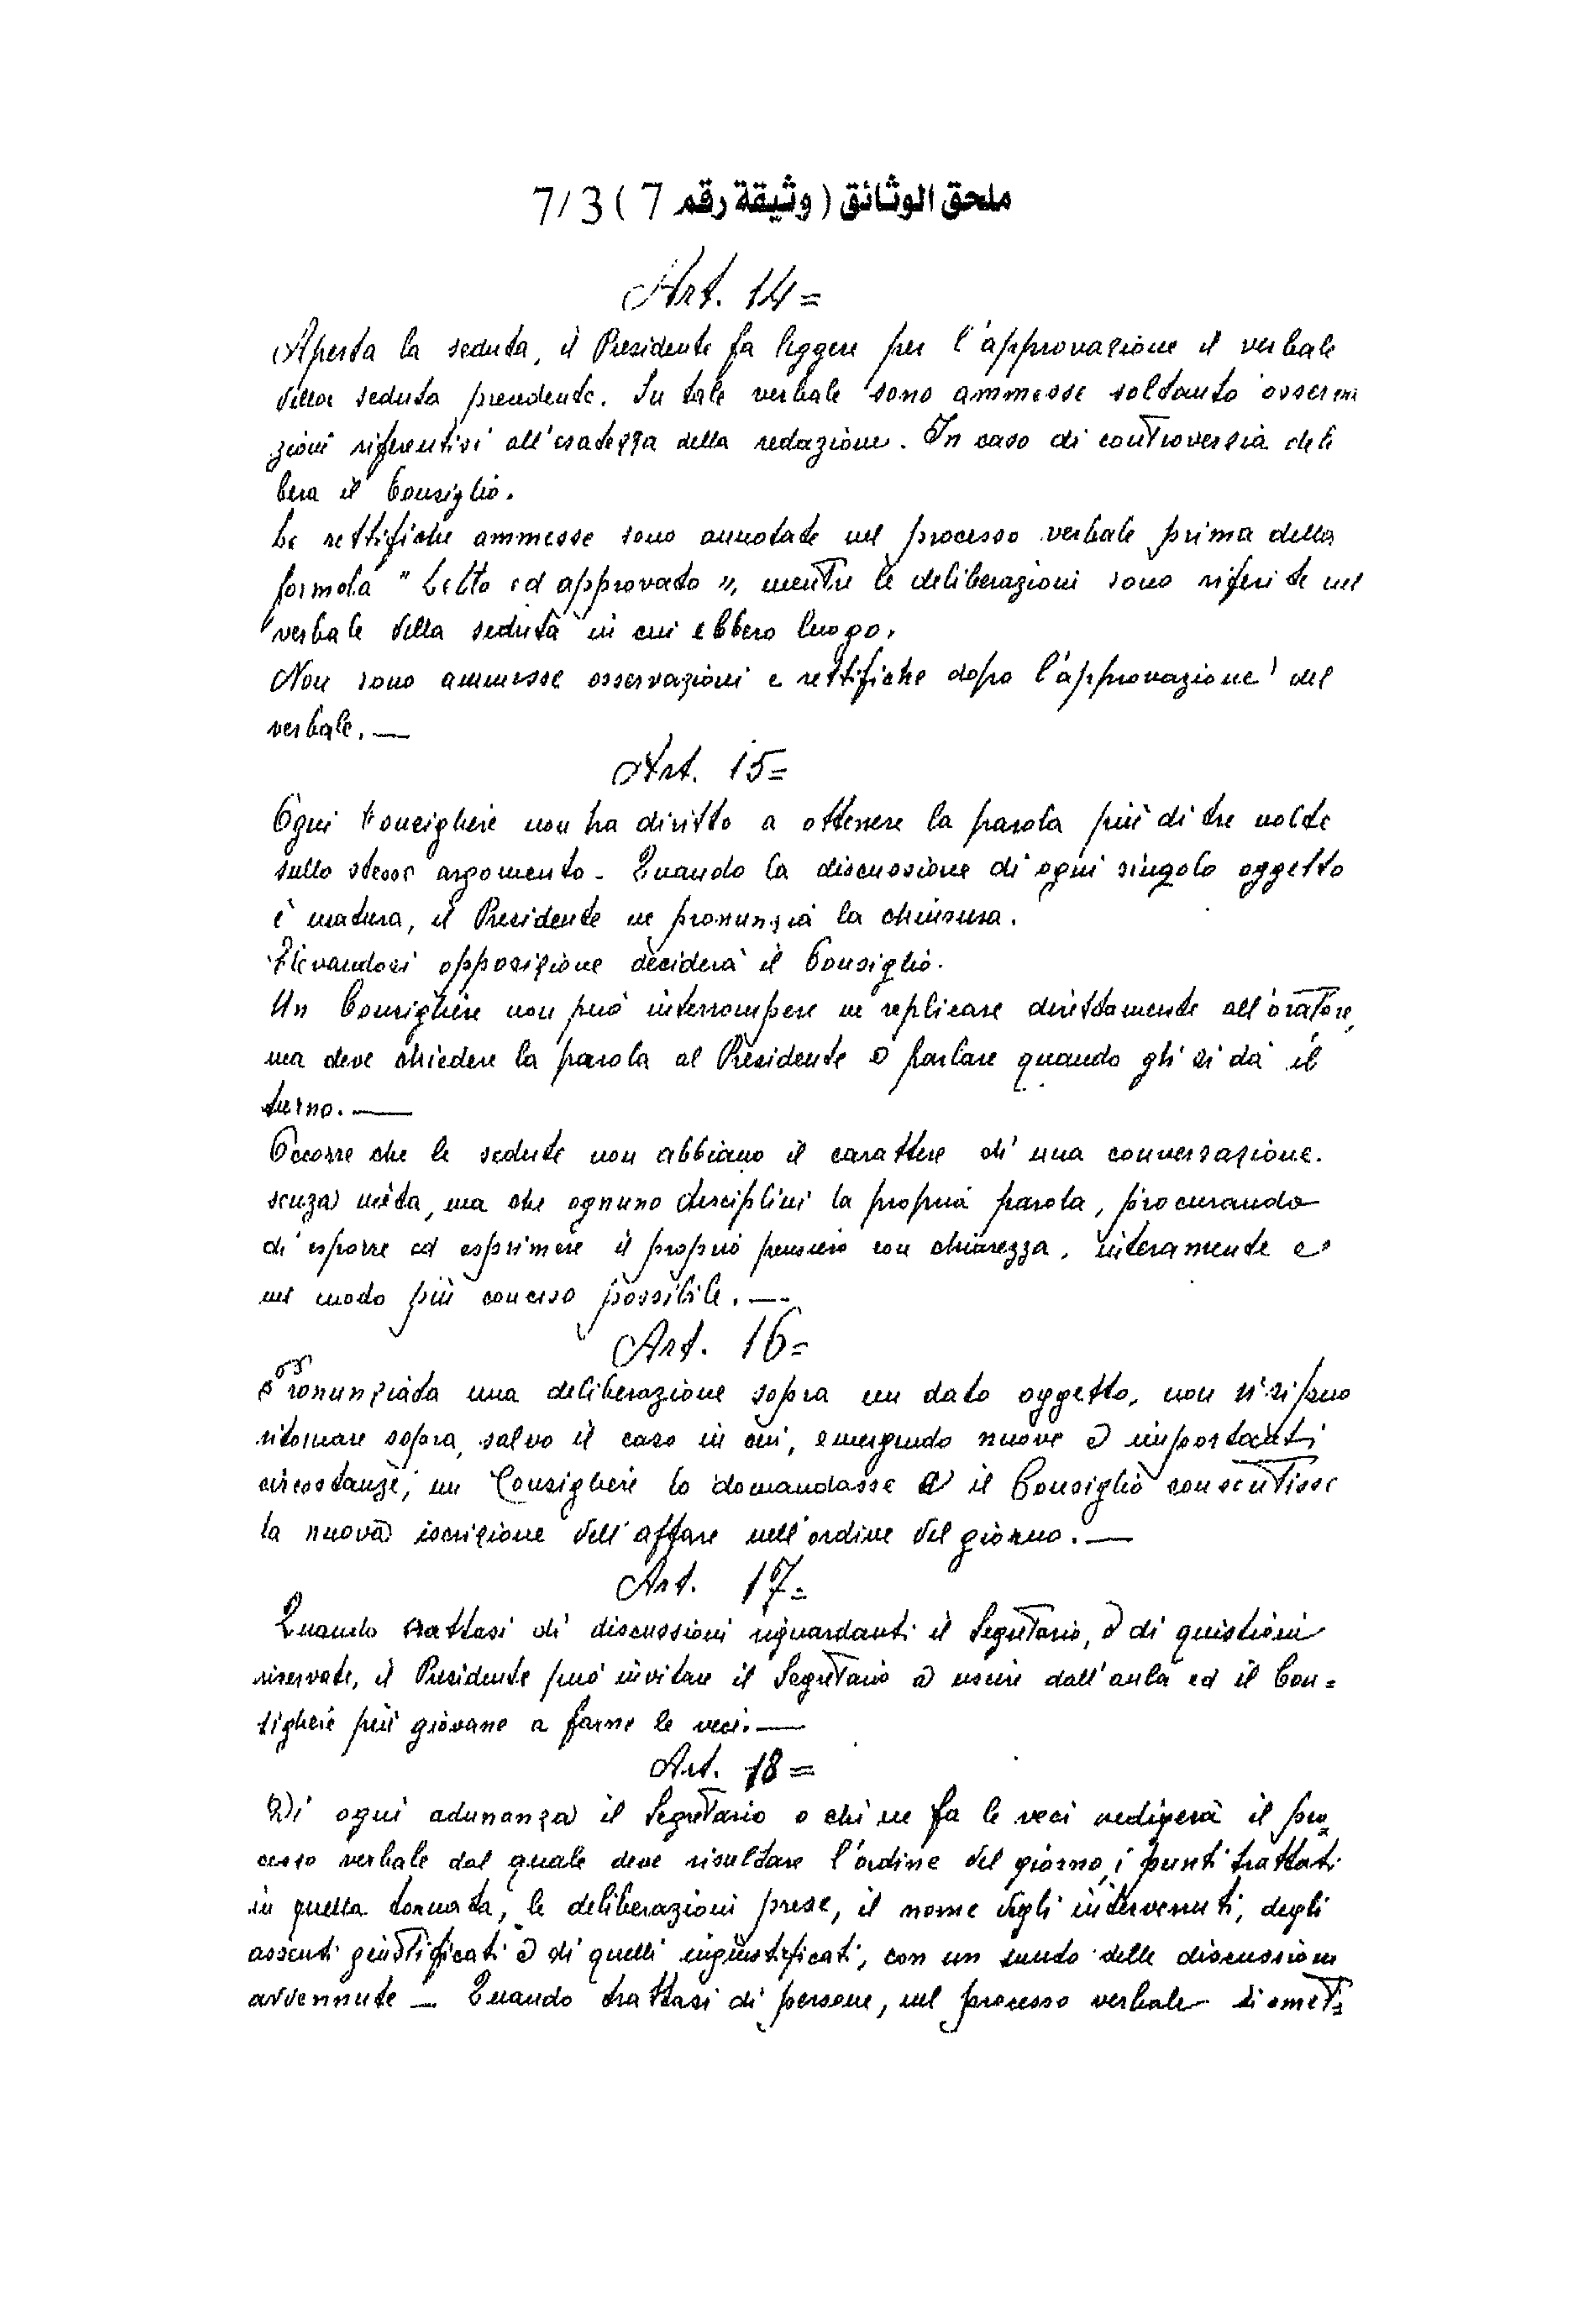 ملحق الوثائق (وثيقة رقم 7) 7/3
Art. 14=
Aperta la seduta, il Presidente fa leggere per l'approvazione il verbale
della seduta precedente. Su tale verbale sono ammesse soltanto osserva
zioni riferentisi all'esatezza della redazione. In caso di controversia deli
bera il Consiglio.
Le rettifiche ammesse sono annotate nel processo verbale prima della
formola "Letto ed approvato", mentre le deliberazioni sono riferite nel
verbale della seduta in cui ebbero luogo.
Non sono ammesse osservazioni e rettifiche dopo l'approvazione del
verbale. —
Art. 15=
Ogni Consigliere non ha diritto a ottenere la parola più di tre volte
sullo stesso argomento. Quando la discussione di ogni singolo oggetto
è matura, il Presidente ne pronunzia la chiusura.
Elevandosi opposizione deciderà il Consiglio.
Un Consigliere non può interrompere ne replicare direttamente all'oratore,
ma deve chiedere la parola al Presidente e parlare quando gli si dà il
turno. —
Occorre che le sedute non abbiano il carattere di una conversazione
senza mèta, ma che ognuno disciplini la propria parola, procurando
di esporre ed esprimere il proprio pensiero con chiarezza, interamente e
nel modo più conciso possibile. —
Art. 16=
Pronunziata una deliberazione sopra un dato oggetto, non si può
ritornare sopra, salvo il caso in cui, emergendo nuove e importanti
circostanze, un Consigliere lo domandasse e il Consiglio consentisse
la nuova iscrizione dell'affare nell'ordine del giorno. —
Art. 17=
Quando trattasi di discussioni riguardanti il Segretario, o di quistioni
riservate, il Presidente può invitare il Segretario a uscire dall'aula ed il Con=
sigliere più giovane a farne le veci. —
Art. 18=
Di ogni adunanza il Segretario o chi ne fa le veci redigerà il pro
cesso verbale dal quale deve risultare l'ordine del giorno, i punti trattati
in quella tornata, le deliberazioni prese, il nome degli intervenuti, degli
assenti giustificati e di quelli ingiustificati, con un sunto delle discussioni
avvennute — Quando trattasi di persone, nel processo verbale si omet=